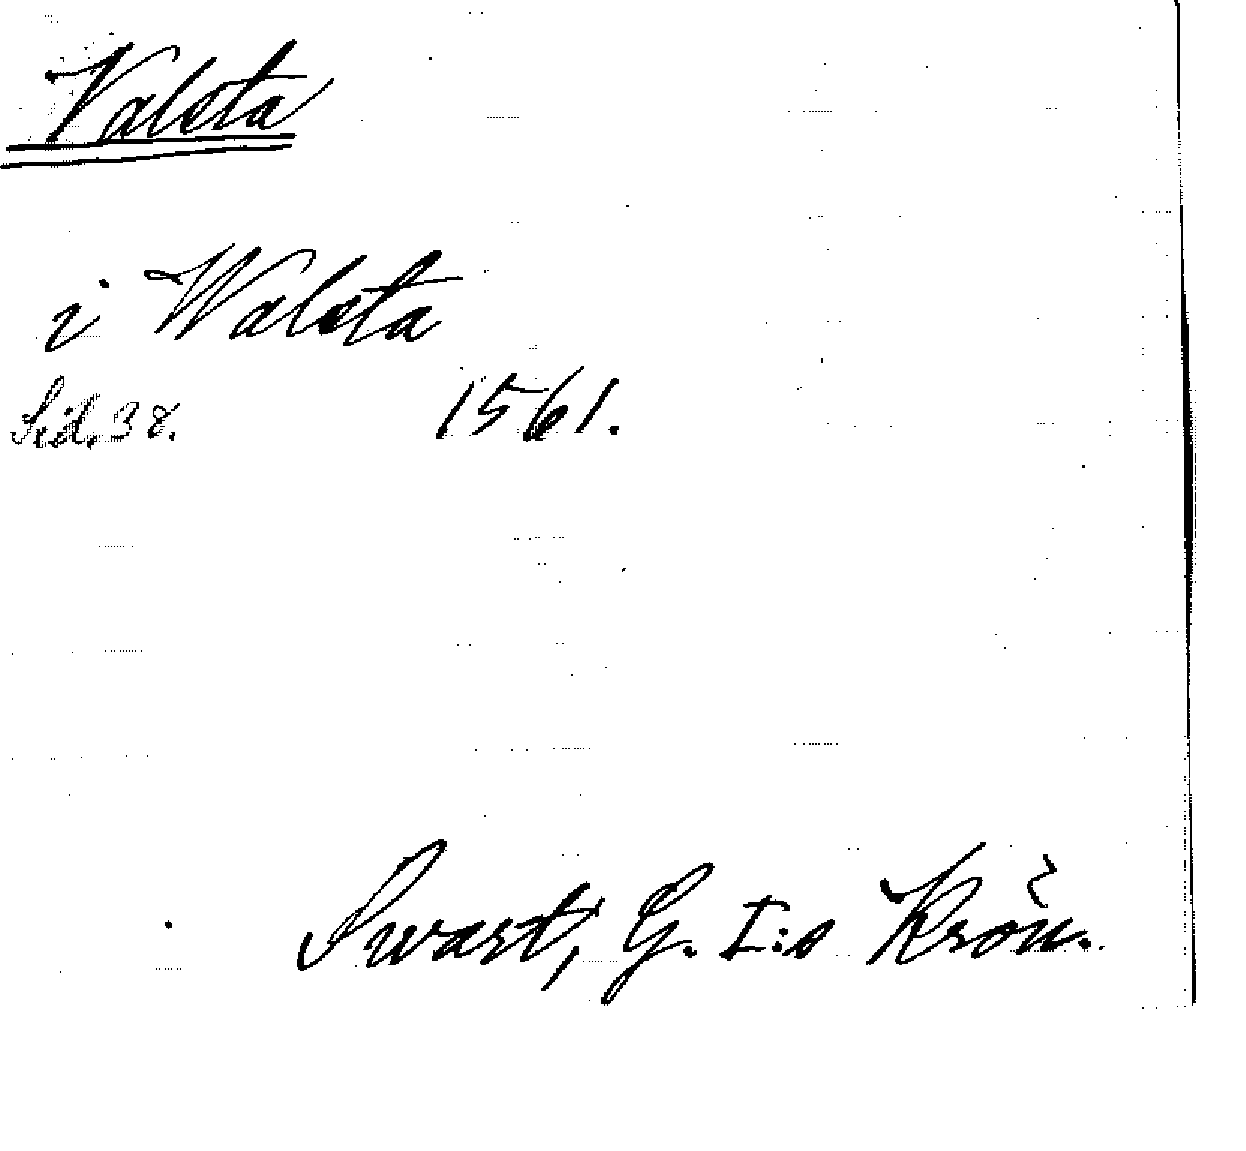 Valsta
i Walsta
Sid. 38. 1561.
Swart, G. I:s Krön.